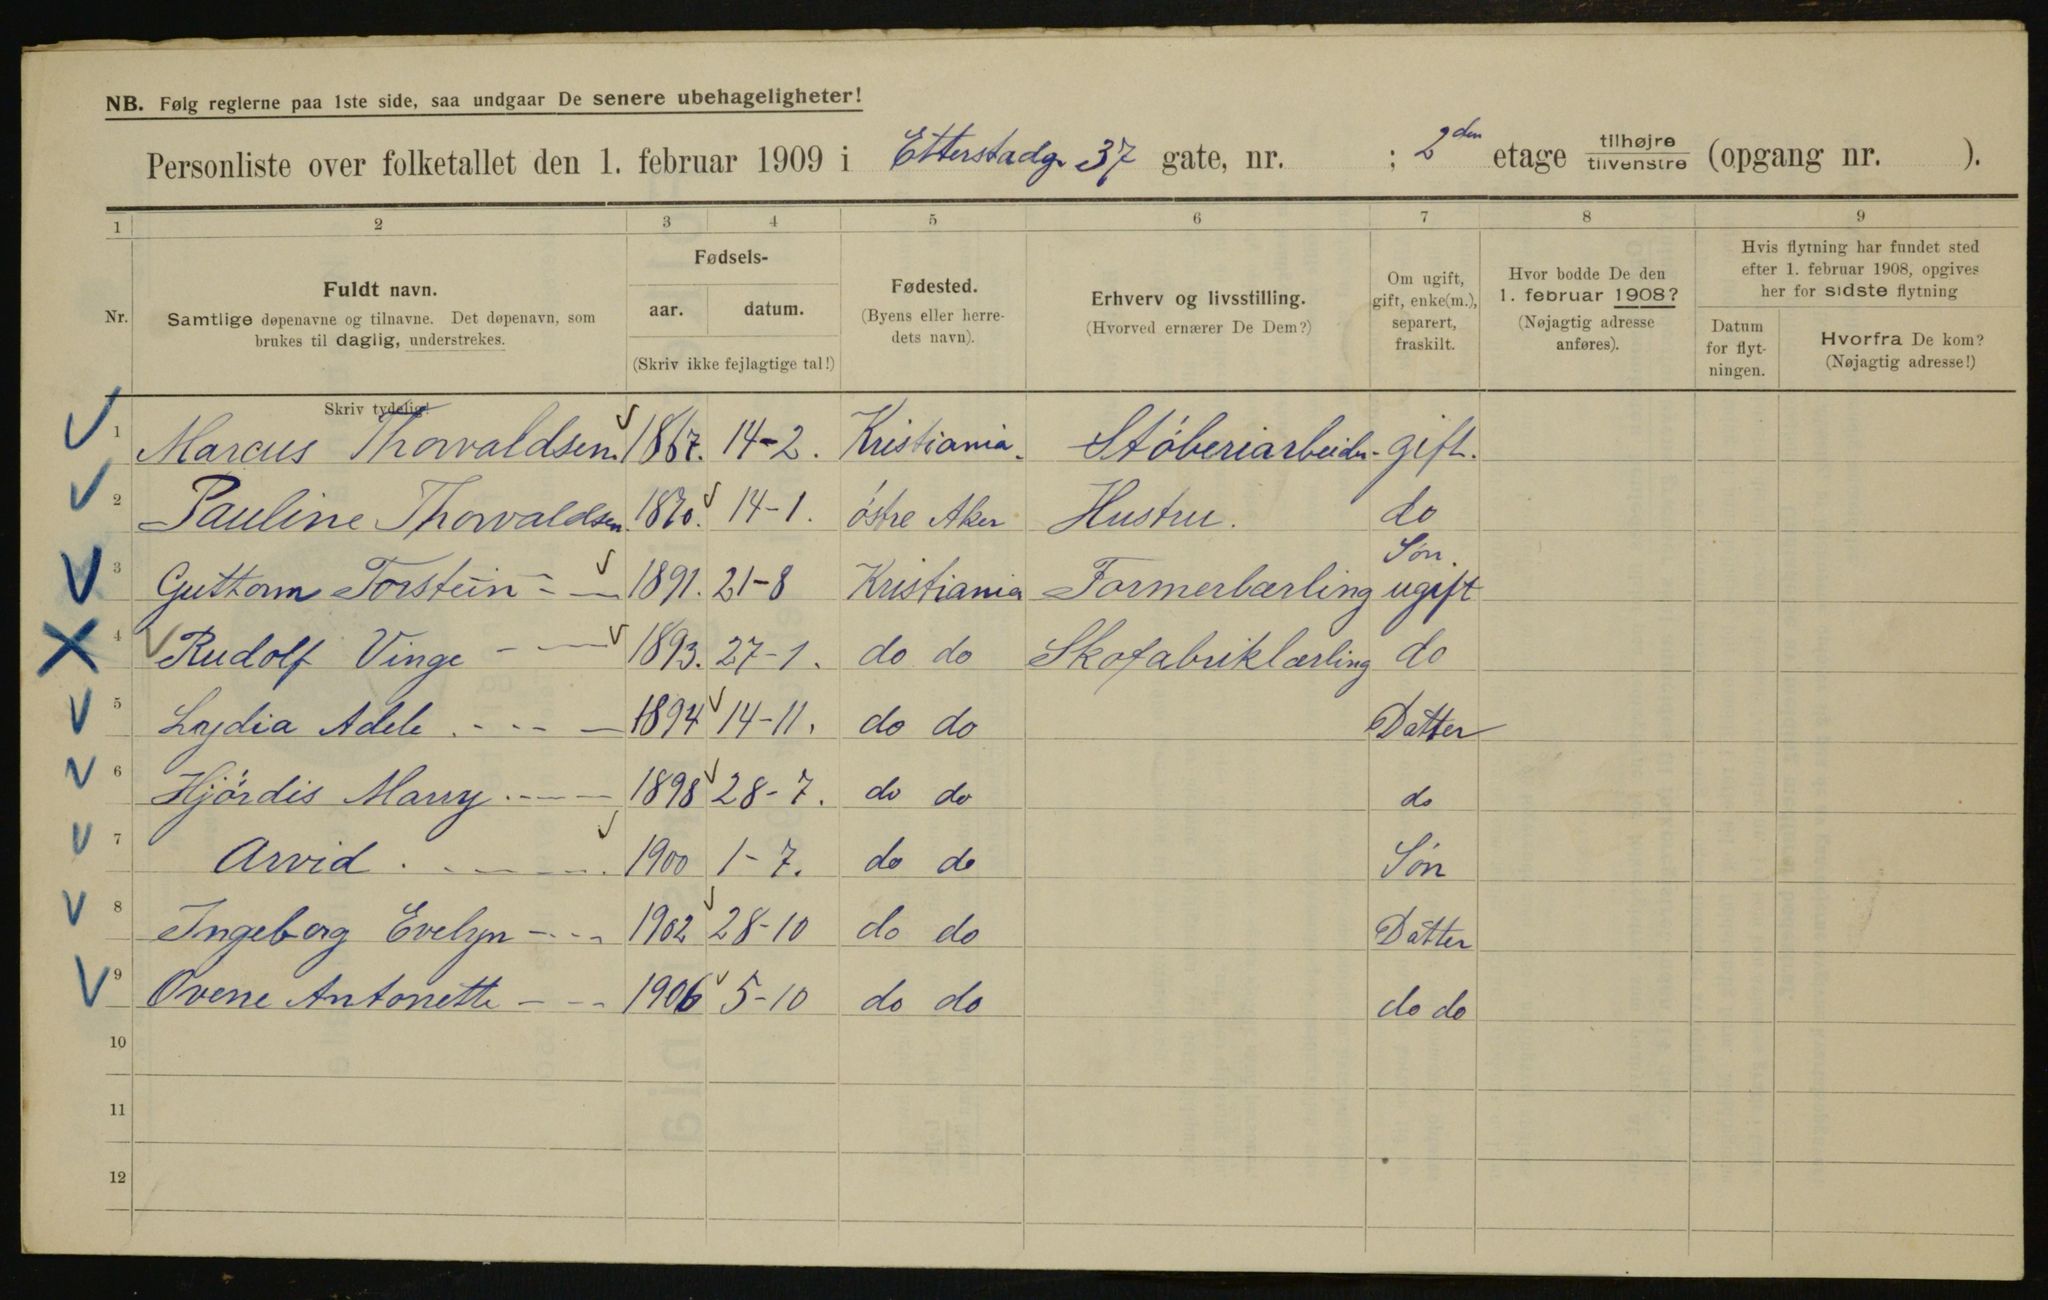 NB. Følg reglerne paa 1ste side, saa undgaar De senere ubehageligheter!
Personliste over folketallet den 1. februar 1909 i Etterstadg. 37 gate, nr. ; 2den etage tilhøjre tilvenstre (opgang nr. ).
1 2 3 4 5 6 7 8 9
Nr. Fuldt navn. Samtlige døpenavne og tilnavne. Det døpenavn, som brukes til daglig, understrekes. Fødsels- aar. datum. (Skriv ikke fejlagtige tal!) Fødested. (Byens eller herredets navn). Erhverv og livsstilling. (Hvorved ernærer De Dem?) Om ugift, gift, enke(m.), separert, fraskilt. Hvor bodde De den 1. februar 1908? (Nøjagtig adresse anføres). Hvis flytning har fundet sted efter 1. februar 1908, opgives her for sidste flytning Datum for flytningen. Hvorfra De kom? (Nøjagtig adresse!)
Skriv tydelig!
1 Marcus Thorvaldsen. 1867. 14-2. Kristiania. Støberiarbeider gift.
2 Pauline Thorvaldsen. 1870. 14-1. østre Aker Hustru. do
3 Guttorm Torstein - — 1891. 21-8 Kristiania Formerlærling Søn ugift
4 Rudolf Vinge - — 1893. 27-1. do do Skofabriklærling do
5 Lydia Adele - - - — 1894 14-11. do do Datter
6 Hjørdis Marry - - - — 1898 28-7. do do do
7 Arvid - - - - 1900 1-7. do do Søn
8 Ingeborg Evelyn - - - 1902 28-10 do do Datter
9 Ovene Antonette - - - 1906 5-10 do do do do
10
11
12